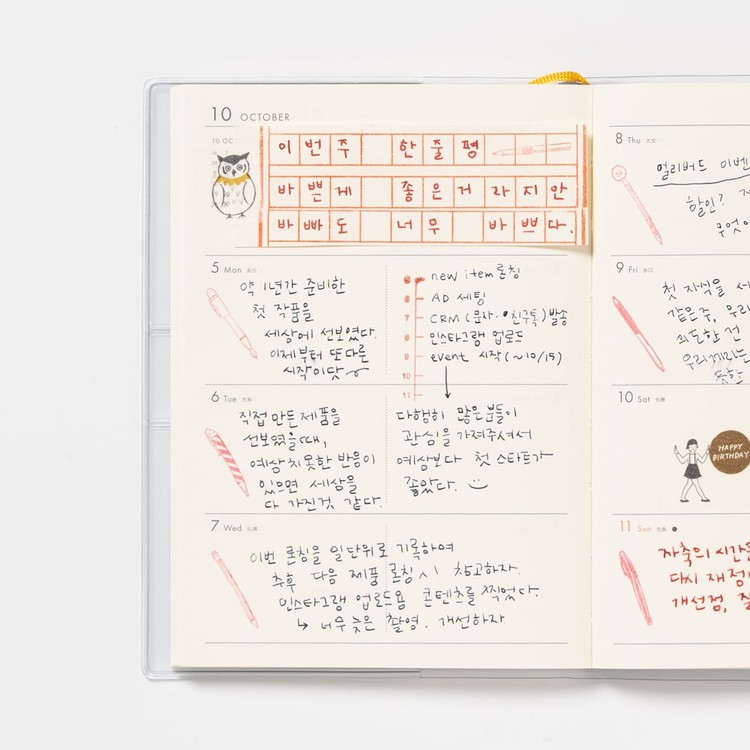 10 OCTOBER
10 OC
이번주 한줄평
바쁜게 좋은거라지만
바빠도 너무 바쁘다.
5 Mon
약 1년간 준비한
첫 작품을
세상에 선보였다.
이제부터 또다른
시작이닷
new item 론칭
AD 세팅
CRM (문자·친구톡) 발송
인스타그램 업로드
event 시작 (~10/15)
6
7
8
9
10
11
6 Tue
직접 만든 제품을
선보였을때,
예상치못한 반응이
있으면 세상을
다 가진것 같다.
다행히 많은분들이
관심을 가져주셔서
예상보다 첫 스타트가
좋았다.
7 Wed
이번 론칭을 일단위로 기록하여
추후 다음 제품 론칭시 참고하자.
인스타그램 업로드용 콘텐츠를 찍었다.
↳ 너무 늦은 촬영. 개선하자
8 Thu
얼리버드 이벤
할인?
무엇이
9 Fri
첫 자식을 세
같은주, 우리
의도한 건
우리끼리는
못한
10 Sat
HAPPY
BIRTHDAY
11 Sun
자축의 시간을
다시 재정
개선점, 잘